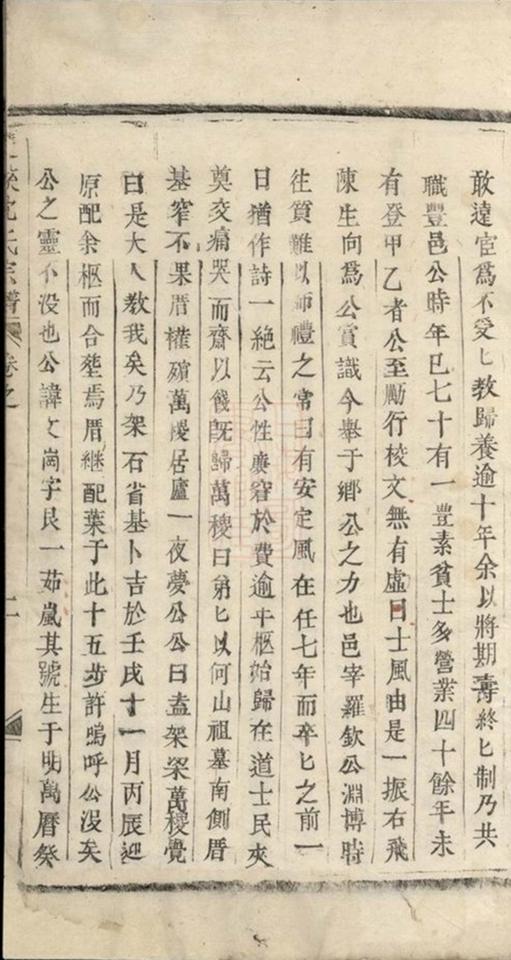 敢遠宦爲不受匕教歸養逾十年余以將期壽終匕制乃共
職豐邑公時年已七十有一豊素貧士多營業四十餘年未
有登甲乙者公至勵行校文無有虛日士風由是一振右飛
陳生向爲公賞識今舉于鄉公之力也邑宰羅欽公淵博時
徃質難以師禮之常曰有安定風在任七年而卒匕之前一
日猶作詩一絶云公性廉窘於費逾半柩始歸在道士民夾
奠交痛哭而齋以餞旣歸萬稷曰弟匕以何山祖墓南側厝
基窄不果厝權殯萬稷居廬一夜夢公公曰盍架梁萬稷覺
曰是大人教我矣乃架石省基卜吉於壬戌十一月丙辰迎
原配余柩而合塟焉厝継配葉于此十五步許嗚呼公没矣
公之靈不没也公諱文崗字艮一茹嵐其號生于明萬曆癸
沈氏宗譜 卷之 二